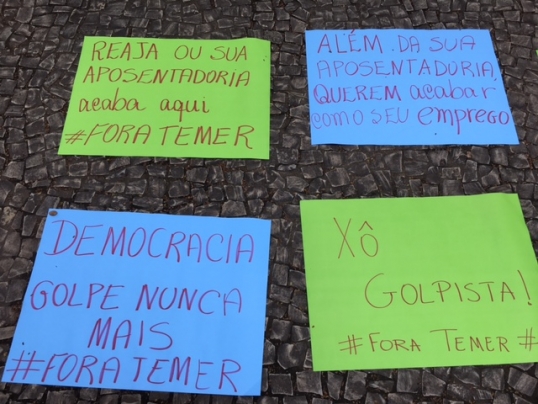 REAJA OU SUA
APOSENTADORIA
acaba aqui
#FORA TEMER
ALÉM DA SUA
APOSENTADURIA,
QUEREM acabar
COM O SEU emprego
DEMOCRACIA
GOLPE NUNCA
MAIS
#FORA TEMER
XÔ
GOLPISTA!
# FORA TEMER #